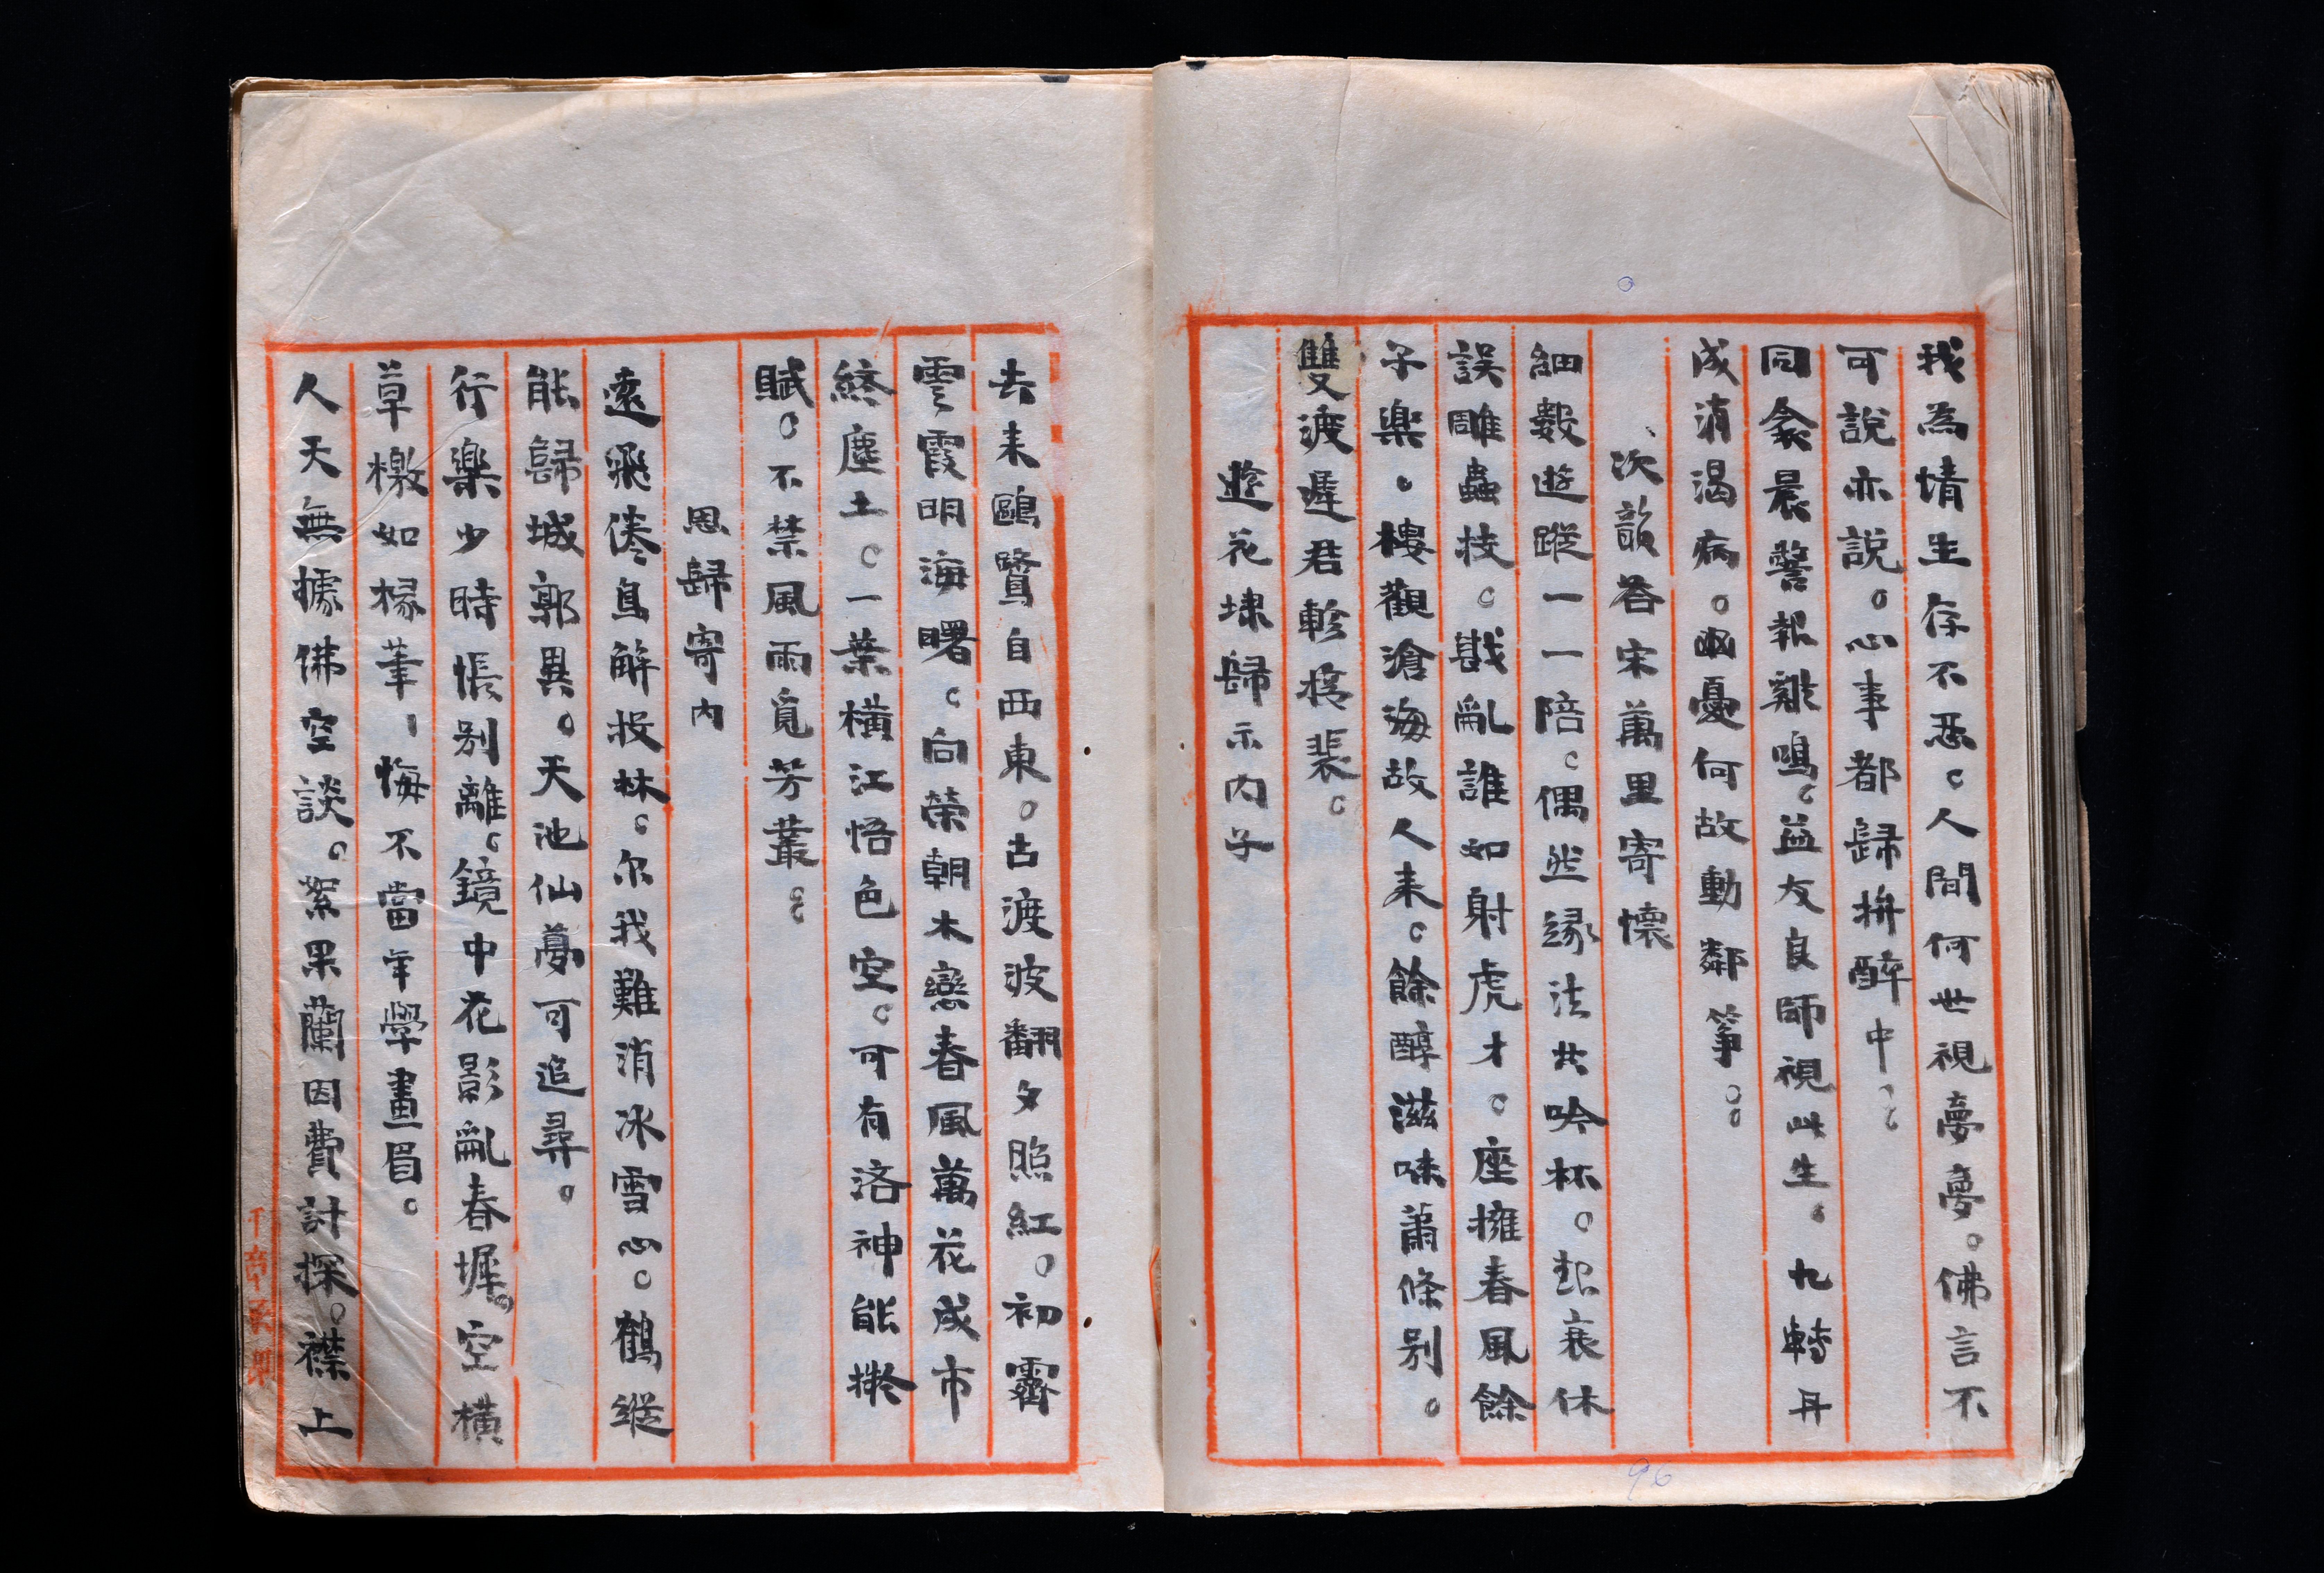 我為情生存不惡。人間何世視夢夢。佛言不
可說亦說。心事都歸拚醉中。
同衾晨警報雞鳴。益友良師視此生。九轉丹
成消渴病。幽憂何故動鄰箏。
次韻答宋萬里寄懷
細數遊蹤一一陪。偶然緣法共吟杯。起衰休
誤雕蟲技。戡亂誰如射虎才。座擁春風餘
子樂。樓觀滄海故人來。餘醇滋味蕭條別。
雙渡遲君軫裴。
遊花埭歸示內子
去來鷗鷺自西東。古渡波翻夕照紅。初霽
雲霞明海曙。向榮朝木戀春風萬花成市
終塵土。一葉橫江悟色空。可有洛神能擬
賦。不禁風雨覓芳叢。
思歸寄內
遠飛倦鳥解投林。尔我難消冰雪心。鶴縱
能歸城郭異。天池仙夢可追尋。
行樂少時悵別離。鏡中花影亂春墀。空橫
草檄如椽筆、悔不當年學畫眉。
人天無據佛空談。絮果蘭因費計探。襟上
96